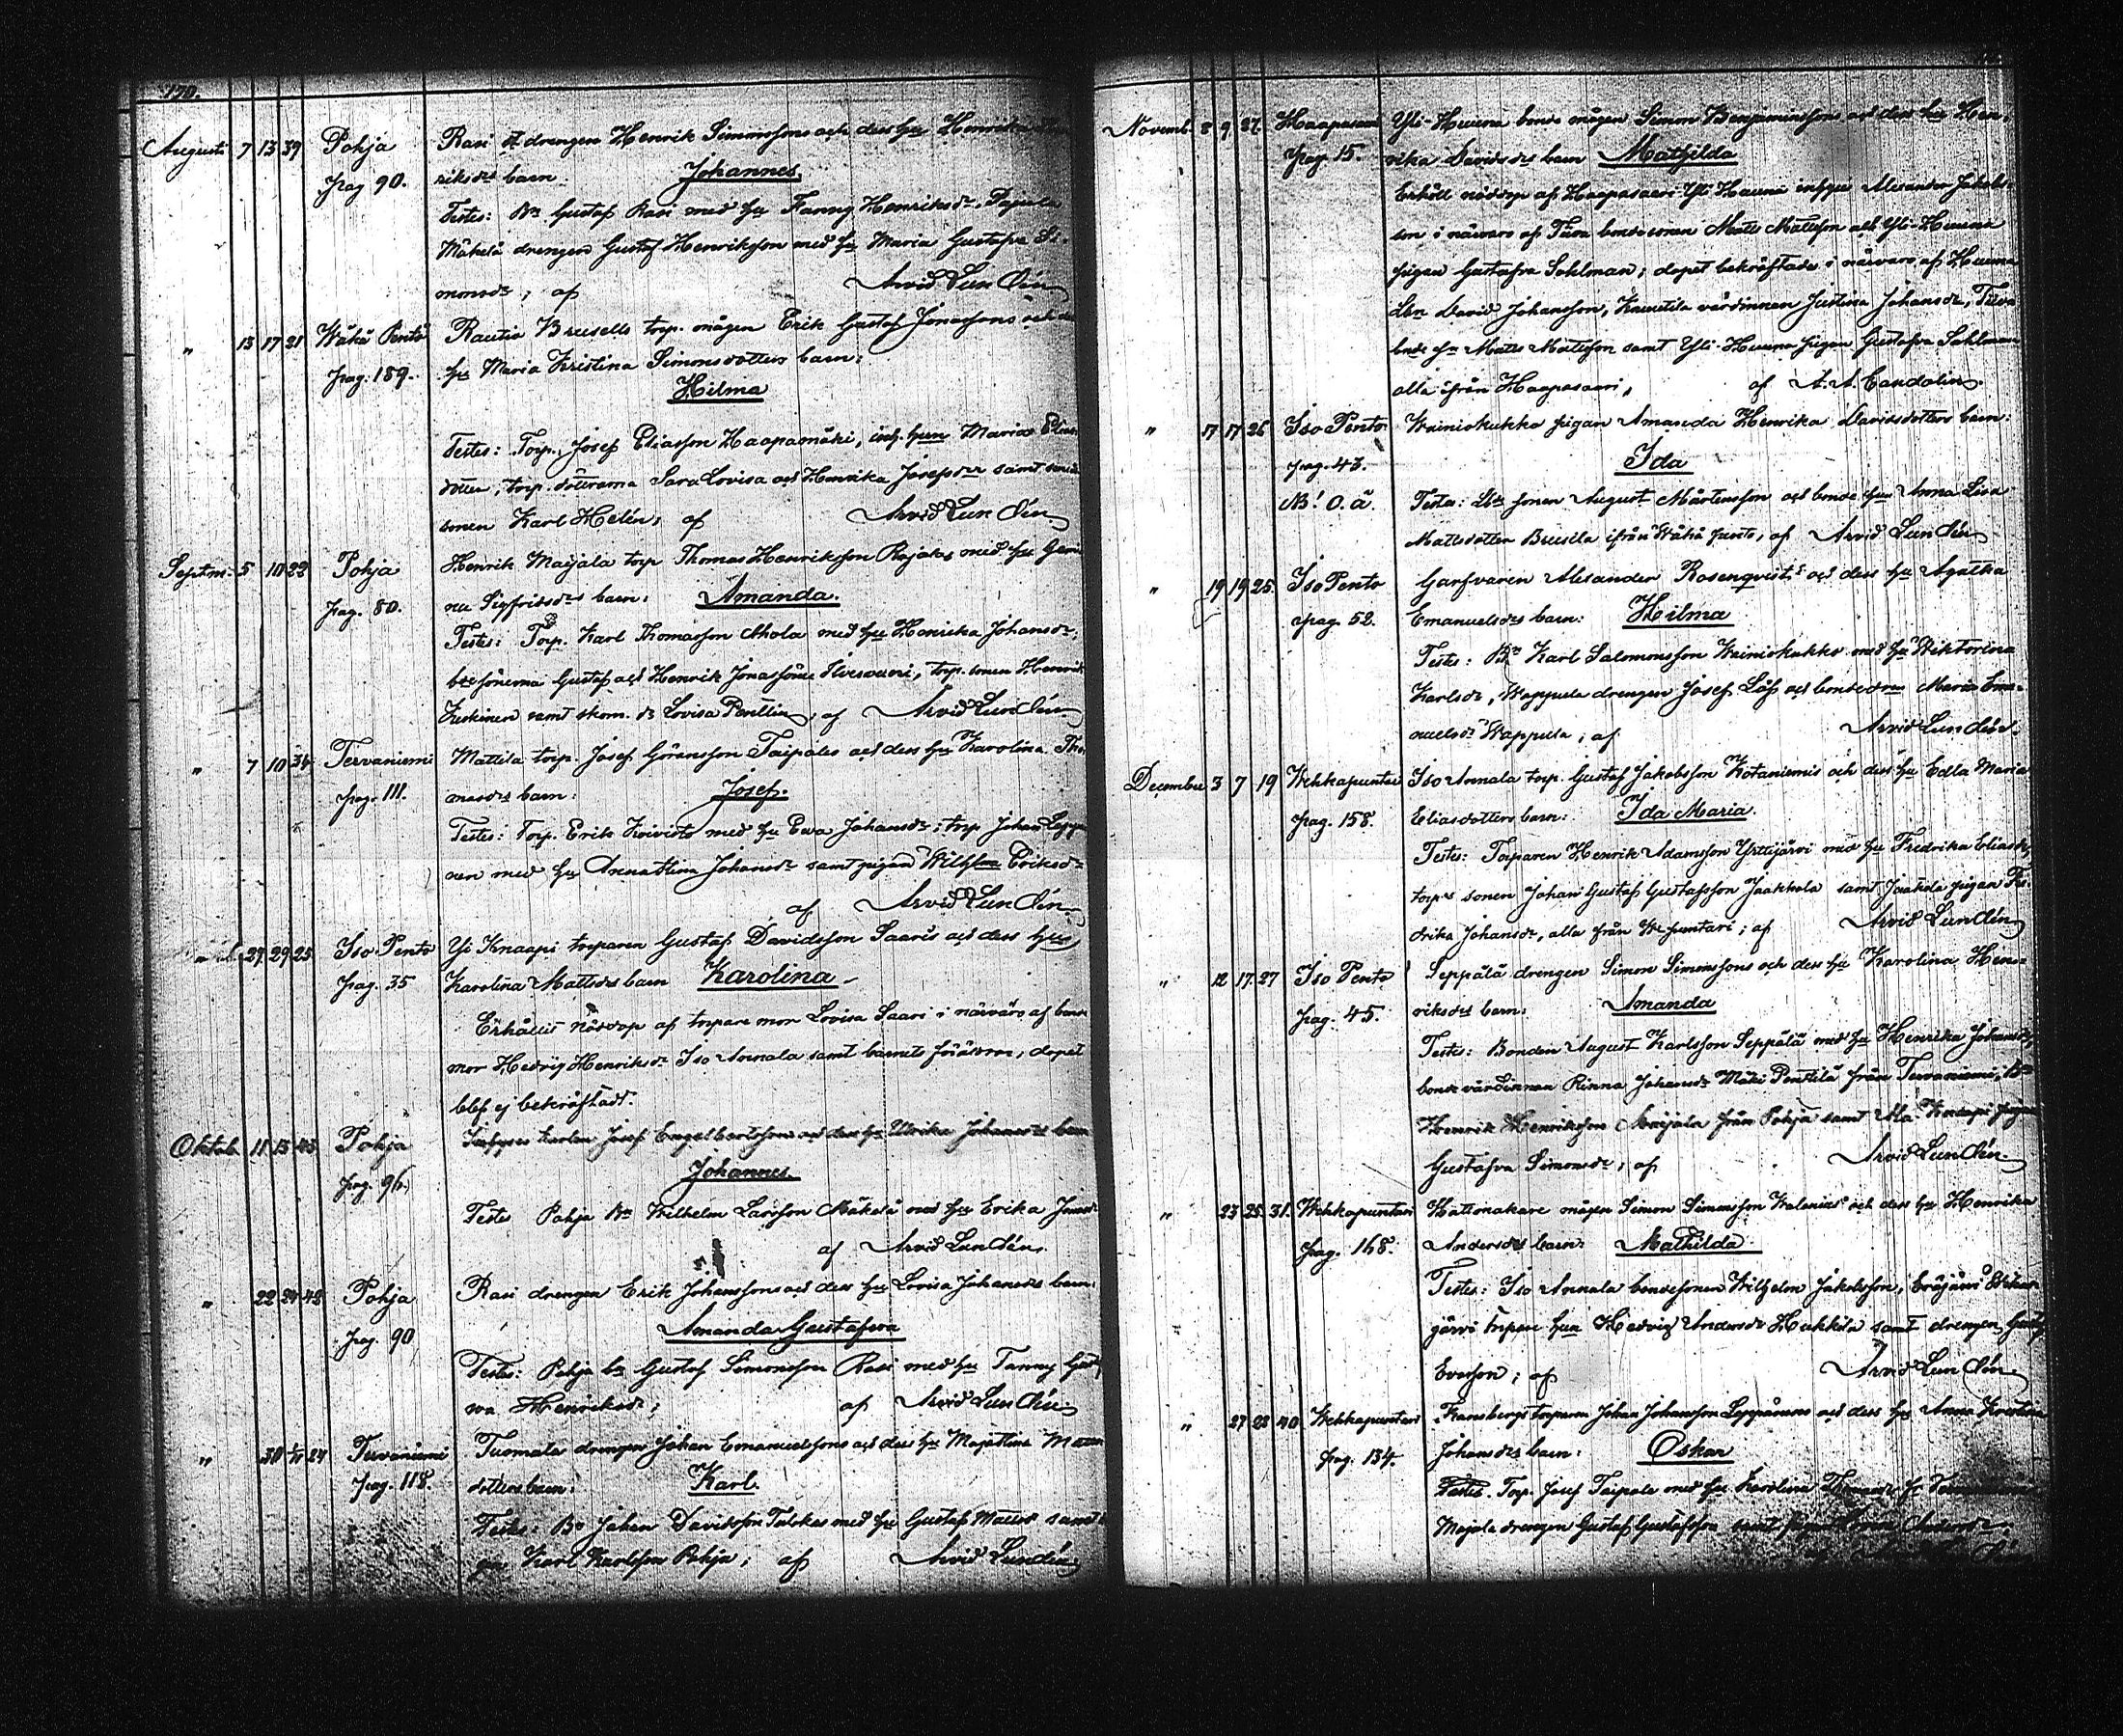 170.
Augusti 7 13 39 Pohja Rasi drengen Henrik Simonssons och dess hu Henrika
pag 90. riksdrs barn: Johannes.
Testes: Bn Gustaf Rasi med hu Fanny Henriksdr, Pajula
Mäkelä drengen Gustaf Henriksson med hu Maria Gustafva Si-
monsdr; af Arvid Lundén
" 13 17 21 Wähä Pento Rautio Bruselle torp. mågen Erik Gustaf Jonassons och
pag. 189. hu Maria Kristina Simonsdotters barn:
Hilma
Testes: Torp. Josef Eliasson Haapamäki, inh. hun Maria Elias
dotter, torp. döttrarna Sara Lovisa och Henrika Josefsdr samt
sonen Karl Helén; af Arvid Lundén
Septm. 5 10 22 Pohja Henrik Maijala torp Thomas Henriksson Rajalas med hu
pag. 80. na Sigfridsdrs barn: Amanda.
Testes: Torp. Karl Thomasson Ahola med hu Henrika Johansdr;
bdesönerna Gustaf och Henrik Jonassöner Ilvesvuori, torp. sonen Henrik
Keskinen samt skom. dr Lovisa Penttin; af Arvid Lundén
" 7 10 34 Tervaniemi Mattila torp. Josef Göransson Taipales och dess hu Karolina Tho
pag. 111. masdrs barn: Josef.
Testes: Torp. Erik Koivisto med hu Ewa Johansdr; torp Johan Lepp
nen med hu Annastina Johansdr samt pigan Wilhma Eriksdr
af Arvid Lundén
27 29 25 Iso Pento Yi Knaapi torparen Gustaf Davidsson Saaris och dess hu
pag. 35 Karolina Mattsdrs barn Karolina
Erhållit nöddop af torpare mor Lovisa Saari i närvaro af
mor Hedvig Henriksdr Iso Annala samt barnets föräldrar; dopet
blef ej bekräftadt.
Oktob. 11 13 43 Pohja Inhyses karlen Josef Engelbertssons och dess hu Ulrika Johansdrs barn
pag. 96. Johannes.
Testes Pohja Bn Wilhelm Larsson Mäkelä med hu Erika
af Arvid Lundén.
" 22 24 42 Pohja Rasi drengen Erik Johanssons och dess hu Lovisa Johansdrs barn:
pag. 90 Amanda Gustafva
Testes: Pohja bn Gustaf Simonsson Rasi med hu Fanny Gustaf
va Henriksdr; af Arvid Lundén.
" 30 1/11 24 Tervaniemi Tuomala drengen Johan Emanuelssons och dess hu Majastina
pag. 118. dotters barn: Karl.
Testes: Bn Johan Davidsson Tulokas med hu Gustafva samt
Karl Karlsson Pohja; af Arvid Lundén
Novemb. 8 9 27. Haapasaari Yli-Heuna bonde mågen Simon Benjaminssons och dess hu Hen-
pag. 15. rika Davidsdrs barn Mathilda
Erhöll nöddop af Haapasaari Yli Heuna inhyse Alexander Jakobs-
son i närvaro af Turva bondesonen Matts Mattsson och Yli-Heuna
pigan Gustafva Sohlman; dopet bekräftades i närvaro af Heuna
David Johansson, Knuutila värdinnan Justina Johansdr, Turva
bonde Matts Mattsson samt Yli-Heuna pigan Gustafva Sohlman
alla ifrån Haapasaari, af A. A. Candolin.
" 17 17 26 Iso Pento Wainiokukka pigan Amanda Henrika Davidsdotters barn:
pag. 43. Ida
NB! O. ä. Testes: sonen August Mårtensson och bonde hun Anna Lisa
Mattsdotter Brusila ifrån Wähä pento, af Arvid Lundén
" 19 19 25. Iso Pento Garfvaren Alexander Rosenqvists och dess hu Agatha
pag. 52. Emanuelsdrs barn: Hilma
Testes: Bn Karl Salomonsson Wainiokukka med hu Wiktorina
Karlsdr, Wappula drengen Josef Löf och bondedrn Maria Ema-
nuelsdr Wappula; af Arvid Lundén.
December 3 7 19 Wehkapuntari Iso Annala torp. Gustaf Jakobsson Kotaniemis och dess hu Edla Maria
pag. 158. Eliasdotters barn: Ida Maria.
Testes: Torparen Henrik Adamsson Yrttijärvi med hu Fredrika Eliasdr,
torps sonen Johan Gustaf Gustafsson Jaakkola samt Jaakola pigan Fre-
drika Johansdr, alla från W puntari; af Arvid Lundén
" 12 17 27 Iso Pento Seppälä drengen Simon Simonssons och dess hu Karolina Hen-
pag. 45. riksdrs barn: Amanda
Testes: Bonden August Karlsson Seppälä med hu Henrika Johansdr,
bonde värdinnan Rinna Johansdr Mäki Penttilä från Tervaniemi, Bn
Henrik Henriksson Maijala från Pohja samt Ala Knaapi pigan
Gustafva Simonsdr; af Arvid Lundén.
" 23 25. 31. Wehkapuntari Hattmakare mågen Simon Simonsson Walenius och dess hu Henrika
pag. 168. Andersdrs barn: Mathilda
Testes: Iso Annala bondesonen Wilhelm Jakobsson,
järvi torpare hun Hedvig Andersdr Hukkila samt drengen Gustaf
Evertson; af Arvid Lundén.
" 27 28 40 Wehkapuntari Fransbergs torparen Johan Johansson Leppänens och dess hu Anna Kristina
pag. 134. Johansdrs barn: Oskar
Testes. Torp. Josef Taipale med hu Karolina Thomasdr fr
Majala drengen Gustaf Gustafsson samt pigan